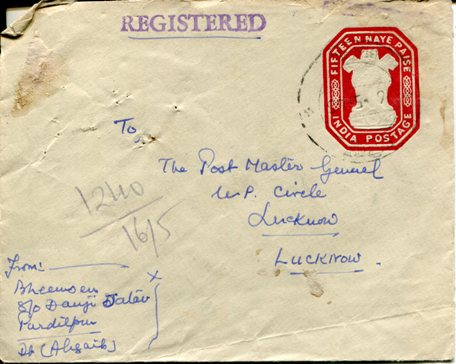 REGISTERED
FIFTEEN NAYE PAISE
INDIA POSTAGE
To
The Post Master General
U.P. Circle
Lucknow
LUCKNOW.
1240
16/5
From:
Bheemsen
S/o Danji Jatav
Pardilpur
Dt (Aligarh)